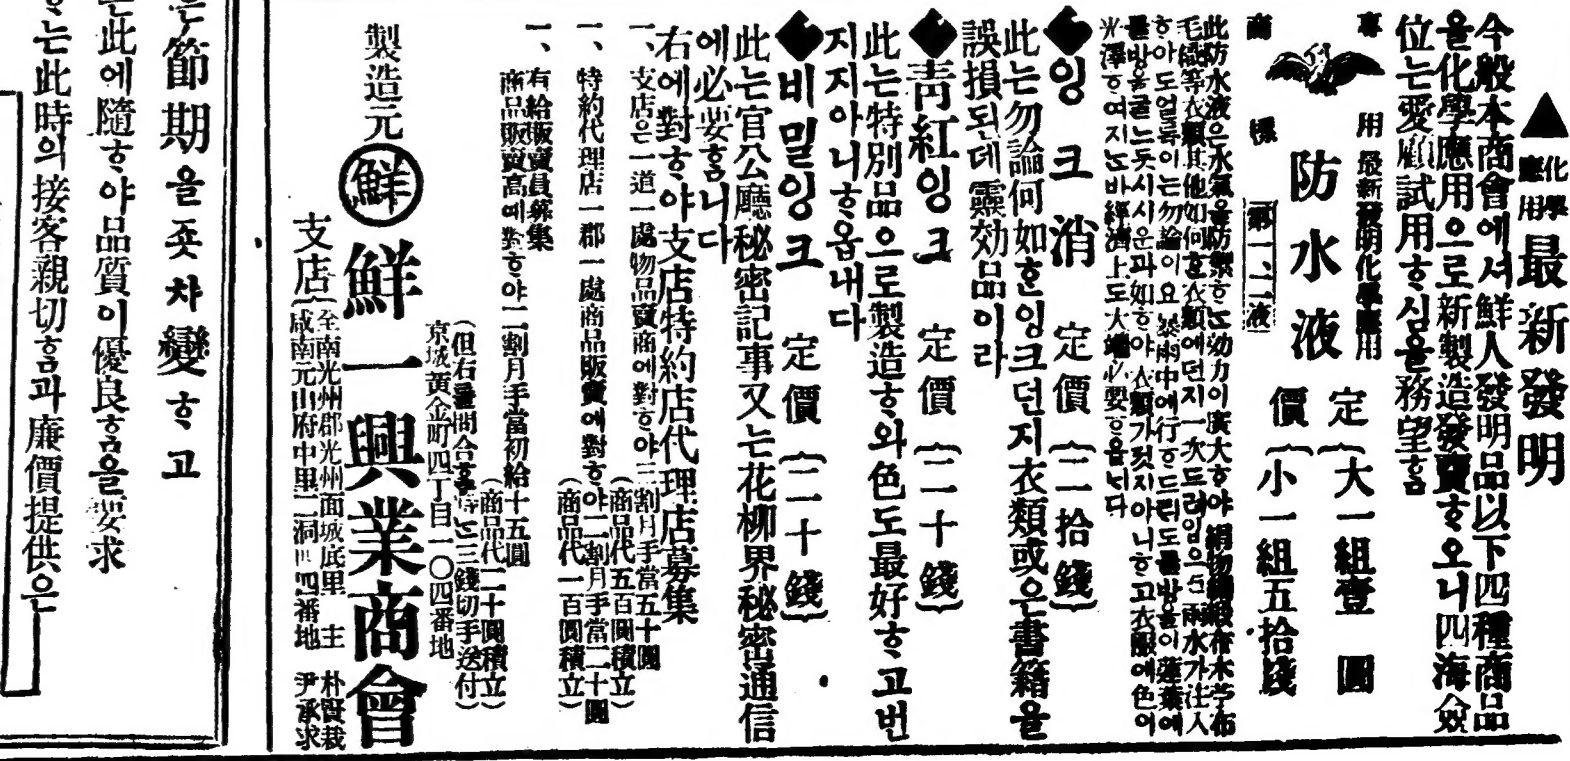 ▲化學應用 最新發明
今般本商會에셔鮮人發明品以下四種商品
을化學應用으로新製造發賣ᄒᆞ오니四海僉
位는愛顧試用ᄒᆞ심을務望홈
專用 最新發明化學應用
商標 第一、二液
防水液
定價 大一組壹圓
小一組五拾錢
此防水液은水氣을防禦ᄒᆞᄂᆞᆫ効力이廣大ᄒᆞ야
毛織等衣類其他如何ᄒᆞᆫ衣類에던지一次드려임으
ᄒᆞ야도얼룩이는勿論이요暴雨中에行ᄒᆞ드ᄅᆡ도물방울이蓮葉에
물방울굴느듯시시운과如ᄒᆞ야衣類가젓지아니ᄒᆞ고衣服에色이
光澤ᄒᆞ여지ᄂᆞᆫ바經濟上도大端必要ᄒᆞ옵ᄂᆡ다
◆잉크消 定價(二拾錢)
此는勿論何如ᄒᆞᆫ잉크던지衣類或은書籍을
誤損되ᄂᆞᆫ데靈効品이라
◆靑紅잉크 定價(二十錢)
此는特別品으로製造ᄒᆞ와色도最好ᄒᆞ고번
지지아니ᄒᆞ옵내다
◆비밀잉크 定價(二十錢)
此는官公廳秘密記事又는花柳界秘密通信
에必要홈니다
右에對ᄒᆞ야支店特約店代理店募集
一、支店은一道一處物品賣商에對ᄒᆞ야三割月手當五十圓
(商品代五百圓積立)
一、特約代理店一郡一處商品販賣에對ᄒᆞ야二割月手當二十圓
(商品代一百圓積立)
一、有給販賣員募集
商品販賣高에對ᄒᆞ야二割月手當初給十五圓
(商品代二十圓積立)
(但右 問合 三錢切手送付)
京城黃金町四丁目一〇四番地
製造元 鮮 鮮一興業商會
支店 全南光州郡光州面城底里 主 朴賢栽
咸南元山府中里二洞 四番地 尹承求
은節期을좃차變ᄒᆞ고
此에隨ᄒᆞ야品質이優良홈을要求
는此時의接客親切홈과廉價提供은